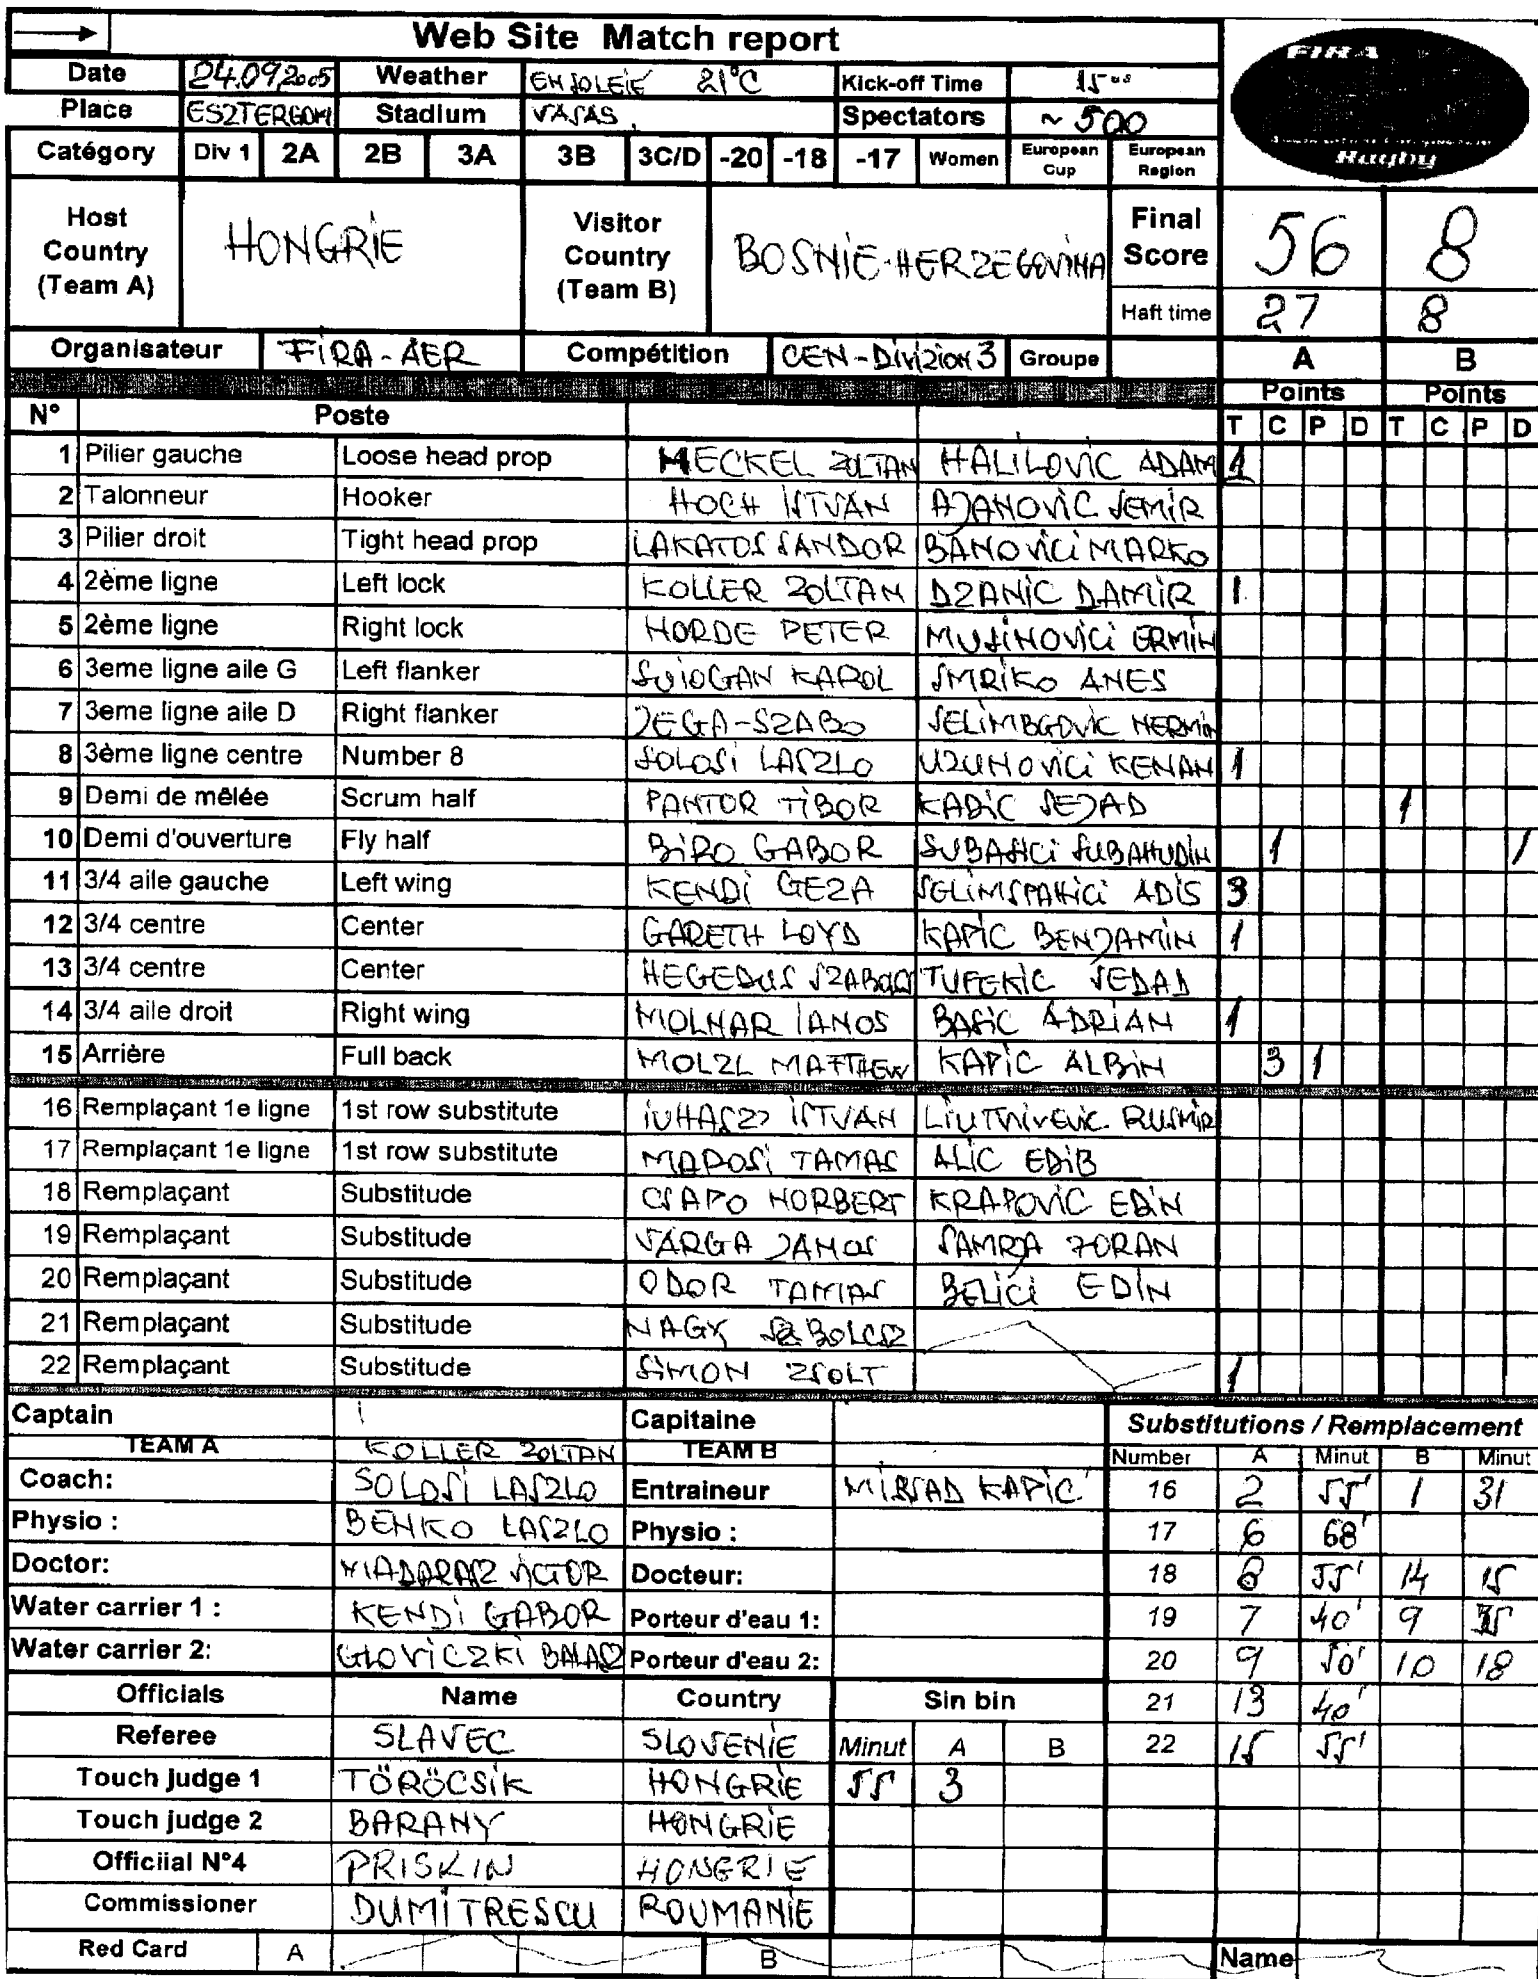 Web Site Match report
Date 24.09.2005 Weather ENSOLEIE 21°C Kick-off Time 15°°
Place ESZTERGOM Stadium VASAS. Spectators ~ 500
FIRA
Rugby
Catégory Div 1 2A 2B 3A 3B 3C/D -20 -18 -17 Women European Cup European Region
Host Country (Team A) HONGRIE Visitor Country (Team B) BOSNIE-HERZEGOVINA Final Score 56 8
Haft time 27 8
Organisateur FIRA-AER Compétition CEN-Divizion 3 Groupe A B
Points Points
N° Poste T C P D T C P D
1 Pilier gauche Loose head prop MECKEL ZOLTAN HALILOVIC ADAM 1
2 Talonneur Hooker HOCH ISTVAN AJANOVIC SEMIR
3 Pilier droit Tight head prop LAKATOS SANDOR BANOVICI MARKO
4 2ème ligne Left lock KOLLER ZOLTAN DZANIC DAMIR 1
5 2ème ligne Right lock HORDE PETER MUSINOVICI ERMIN
6 3eme ligne aile G Left flanker SUIOGAN KAROL SMRIKO ANES
7 3eme ligne aile D Right flanker JEGA-SZABO SELIMBGOVIC NERMIN
8 3ème ligne centre Number 8 SOLOSI LASZLO UZUNOVICI KENAN 1
9 Demi de mêlée Scrum half PANTOR TIBOR KADIC SEJAD 1
10 Demi d'ouverture Fly half BIRO GABOR SUBASICI SUBAHUDIN 1 1
11 3/4 aile gauche Left wing KENDI GEZA SELIMSPAHICI ADIS 3
12 3/4 centre Center GARETH LOYD KAPIC BENJAMIN 1
13 3/4 centre Center HEGEDUS SZABOLCS TUFEKIC SEDAD
14 3/4 aile droit Right wing MOLNAR IANOS BASIC ADRIAN 1
15 Arrière Full back MOLZL MATTHEW KAPIC ALBIN 3 1
16 Remplaçant 1e ligne 1st row substitute ISTVAN RUSMIR
17 Remplaçant 1e ligne 1st row substitute MAROSI TAMAS ALIC EDIB
18 Remplaçant Substitude CSAPO NORBERT KRAPOVIC EDIN
19 Remplaçant Substitude VARGA JANOS SAMRJA ZORAN
20 Remplaçant Substitude ODOR TAMAS BELICI EDIN
21 Remplaçant Substitude NAGY
22 Remplaçant Substitude SIMON ZSOLT 1
Captain TEAM A KOLLER ZOLTAN Capitaine TEAM B Substitutions / Remplacement
Number A Minut B Minut
Coach: SOLOSI LASZLO Entraineur MIRSAD KAPIC 16 2 55' 1 31
Physio : BENKO LASZLO Physio : 17 6 68'
Doctor: VICTOR Docteur: 18 8 55' 14 15
Water carrier 1 : KENDI GABOR Porteur d'eau 1: 19 7 40' 9 35
Water carrier 2: GLOVICZKI BALASZ Porteur d'eau 2: 20 9 50' 10 18
Officials Name Country Sin bin 21 13 40'
Referee SLAVEC SLOVENIE Minut A B 22 15 55'
Touch judge 1 TÖRÖCSIK HONGRIE 55 3
Touch judge 2 BARANY HONGRIE
Officiial N°4 PRISKIN HONGRIE
Commissioner DUMITRESCU ROUMANIE
Red Card A B Name